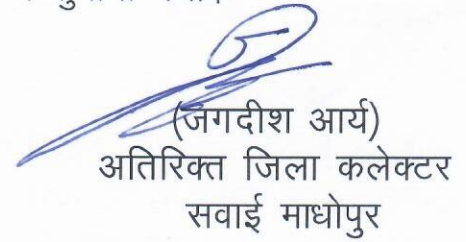 (जगदीश आर्य)
अतिरिक्त जिला कलेक्टर
सवाई माधोपुर